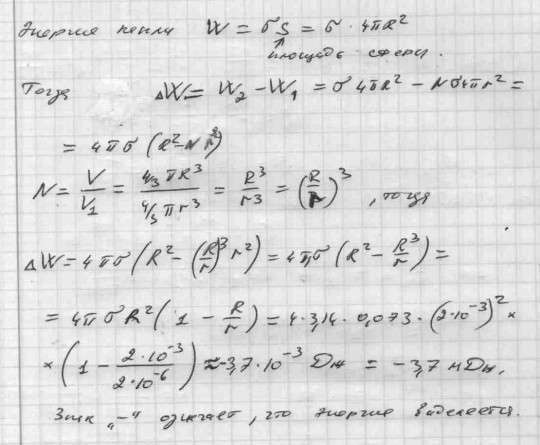 Энергия капли W = σS = σ · 4πR²
площадь сферы.
Тогда ΔW = W₂ − W₁ = σ4πR² − Nσ4πr² =
= 4πσ (R² − Nr²)
N = V/V₁ = (4/3 πR³)/(4/3 πr³) = R³/r³ = (R/r)³, тогда
ΔW = 4πσ (R² − (R/r)³ r²) = 4πσ (R² − R³/r) =
= 4πσR² (1 − R/r) = 4·3,14·0,073·(2·10⁻³)² ×
× (1 − 2·10⁻³/2·10⁻⁶) ≈ −3,7·10⁻³ Дж = −3,7 мДж.
Знак „−“ означает, что энергия выделяется.